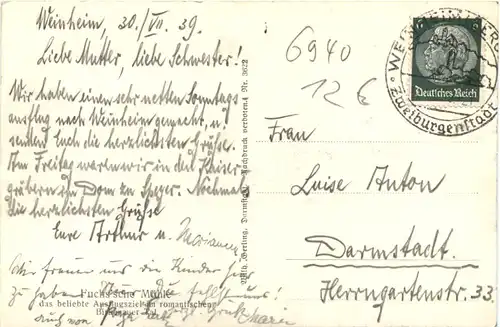 Weinheim, 30./VII. 39.
Liebe Mutter, liebe Schwester!
Wir haben einen sehr netten Sonntags
ausflug nach Weinheim gemacht, u.
senden Euch die herzlichsten Grüße.
Am Freitag waren wir in den Kaiser
gräbern im Dom zu Speyer. Nochmals
die herzlichsten Grüße
Eure Arthur u. Marianne
Wir freuen uns die Kinder hier
zu haben
Fuchs'sche Mühle
das beliebte Ausflugsziel im romantischen
Birkenauer Tal
auch von
Gruß Marie
Wilh. Gerling, Darmstadt. Nachdruck verboten! Nr. 3622
6940
12 €
WEINHEIM (BERGSTR)
Zweiburgenstadt
Deutsches Reich
Frau
Luise Anton
Darmstadt.
Herrngartenstr. 33